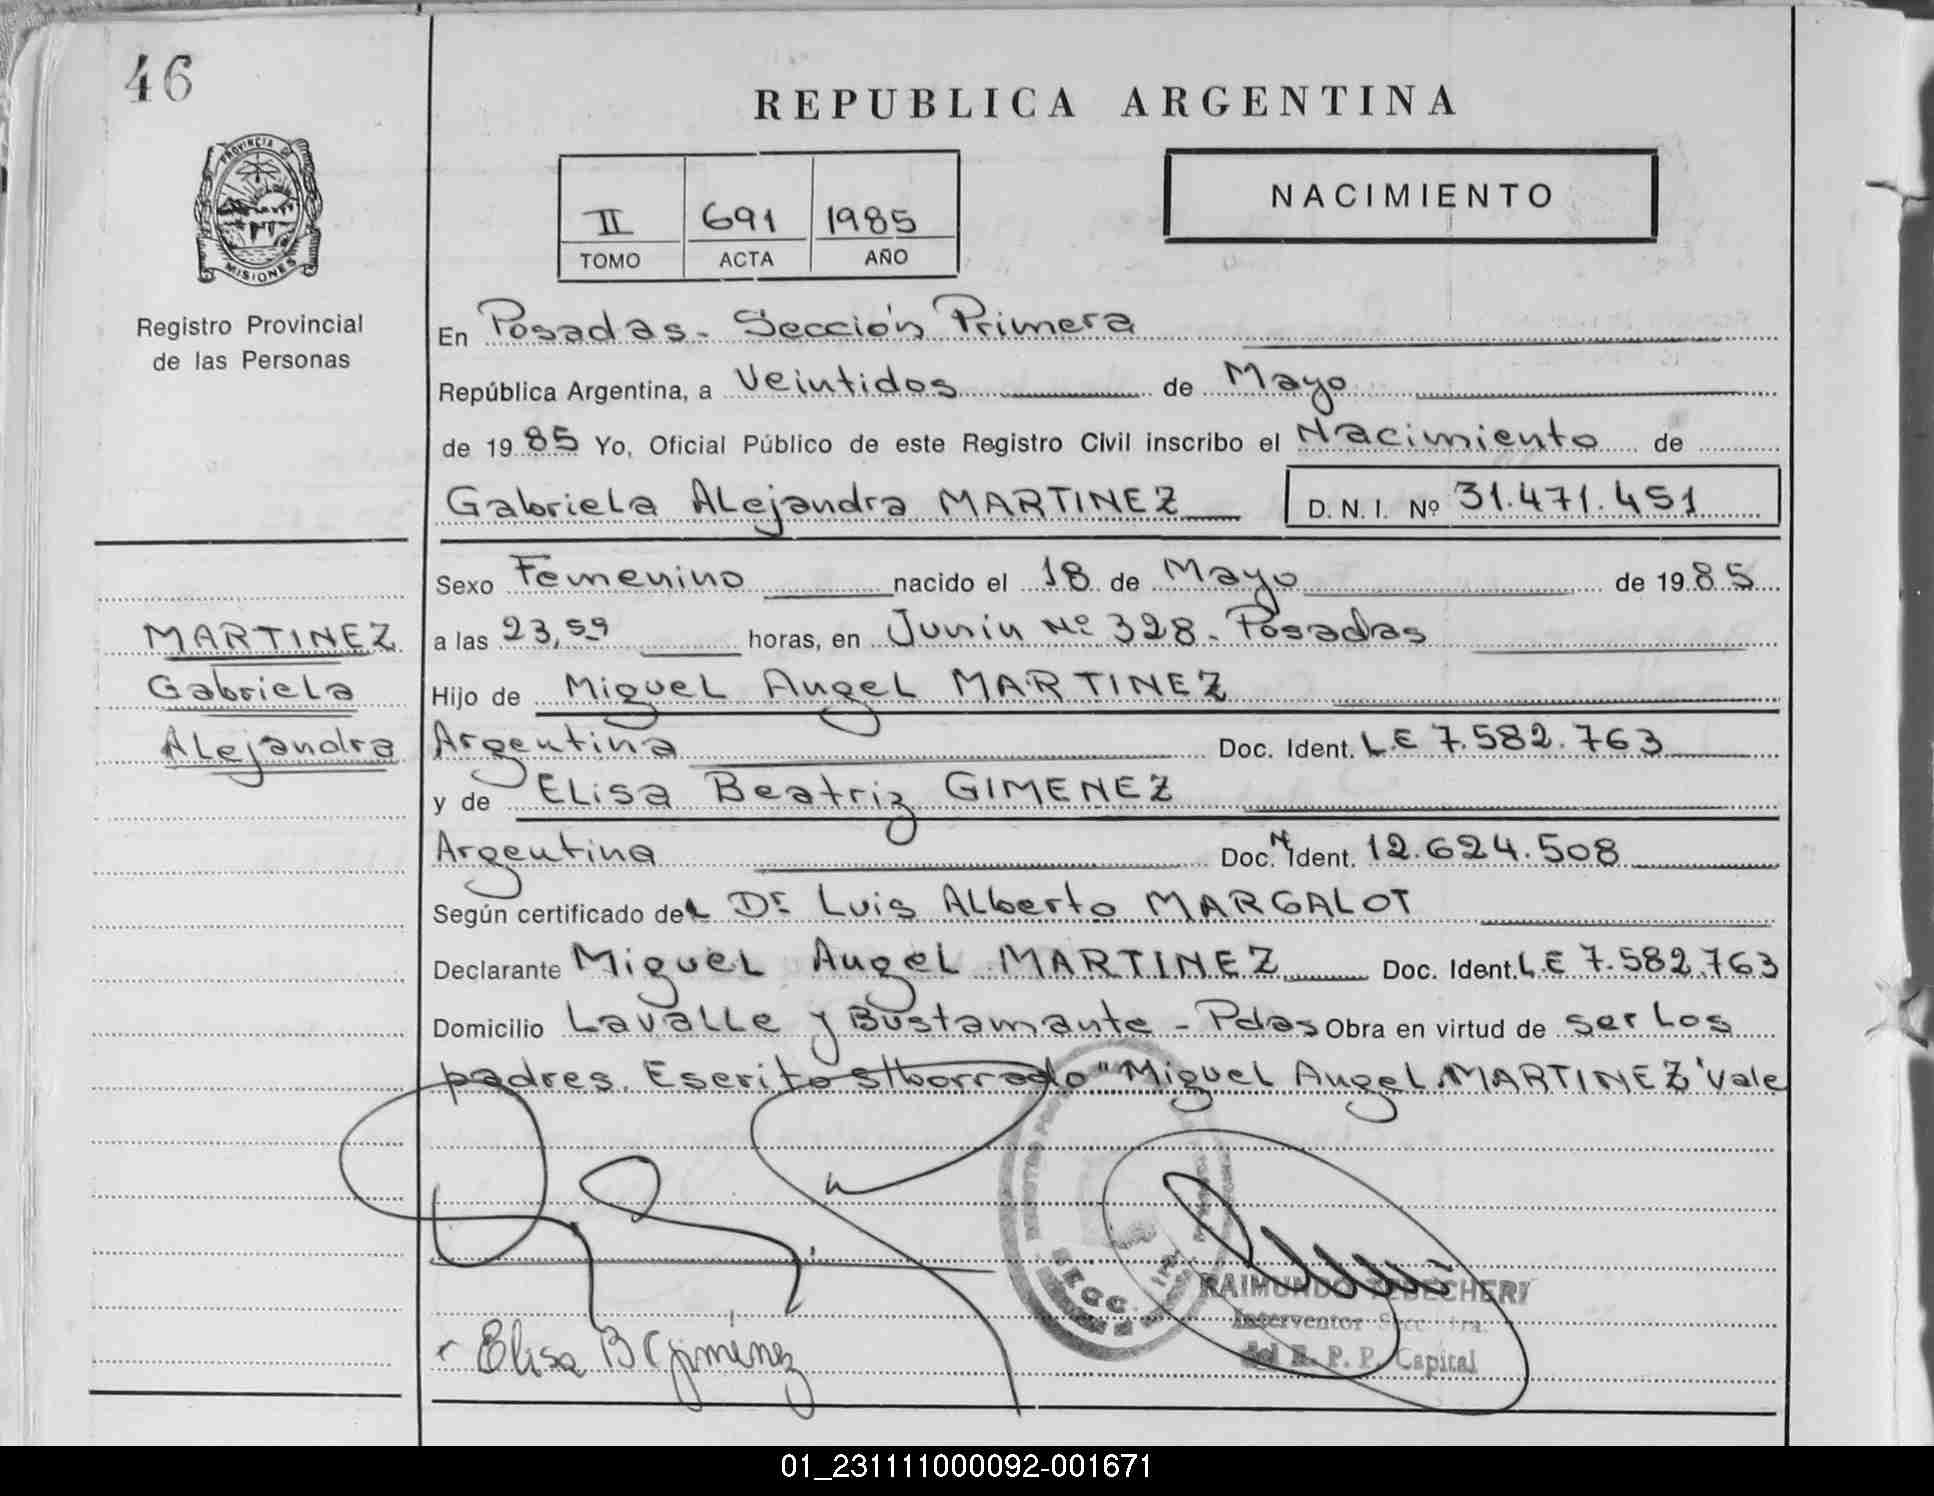 46
REPUBLICA ARGENTINA
PROVINCIA DE
MISIONES
II 691 1985
TOMO ACTA AÑO
NACIMIENTO
Registro Provincial
de las Personas
En Posadas - Sección Primera
República Argentina, a Veintidos de Mayo
de 1985 Yo, Oficial Público de este Registro Civil inscribo el Nacimiento de
Gabriela Alejandra MARTINEZ D. N. I. Nº 31.471.451
Sexo Femenino nacido el 18 de Mayo de 1985
MARTINEZ
Gabriela
Alejandra
a las 23,59 horas, en Junin Nº 328 - Posadas
Hijo de Miguel Angel MARTINEZ
Argentina Doc. Ident. L.E 7.582.763
y de Elisa Beatriz GIMENEZ
Argentina Doc. N Ident. 12.624.508
Según certificado del Dr Luis Alberto MARGALOT
Declarante Miguel Angel MARTINEZ Doc. Ident. L.E 7.582.763
Domicilio Lavalle y Bustamante - Pdas Obra en virtud de ser los
padres. Escrito s/borrado "Miguel Angel MARTINEZ" Vale
SECC.
RAIMUNDO
Interventor Secc. 1ra.
del R. P. P. Capital
Elisa B Gimenez
01_231111000092-001671